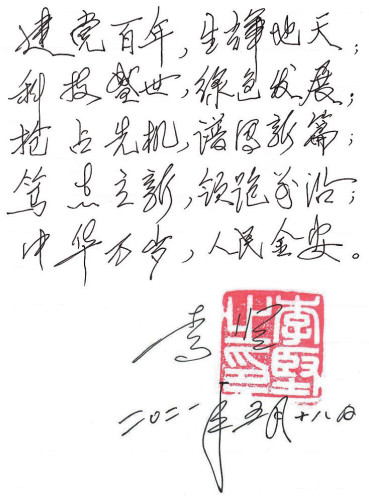 建党百年,生辉地天;
科技盛世,绿色发展;
抢占先机,谱写新篇;
笃志立新,领跑前沿;
中华万岁,人民金安。
李坚
李堅之印
二〇二一年五月十八日